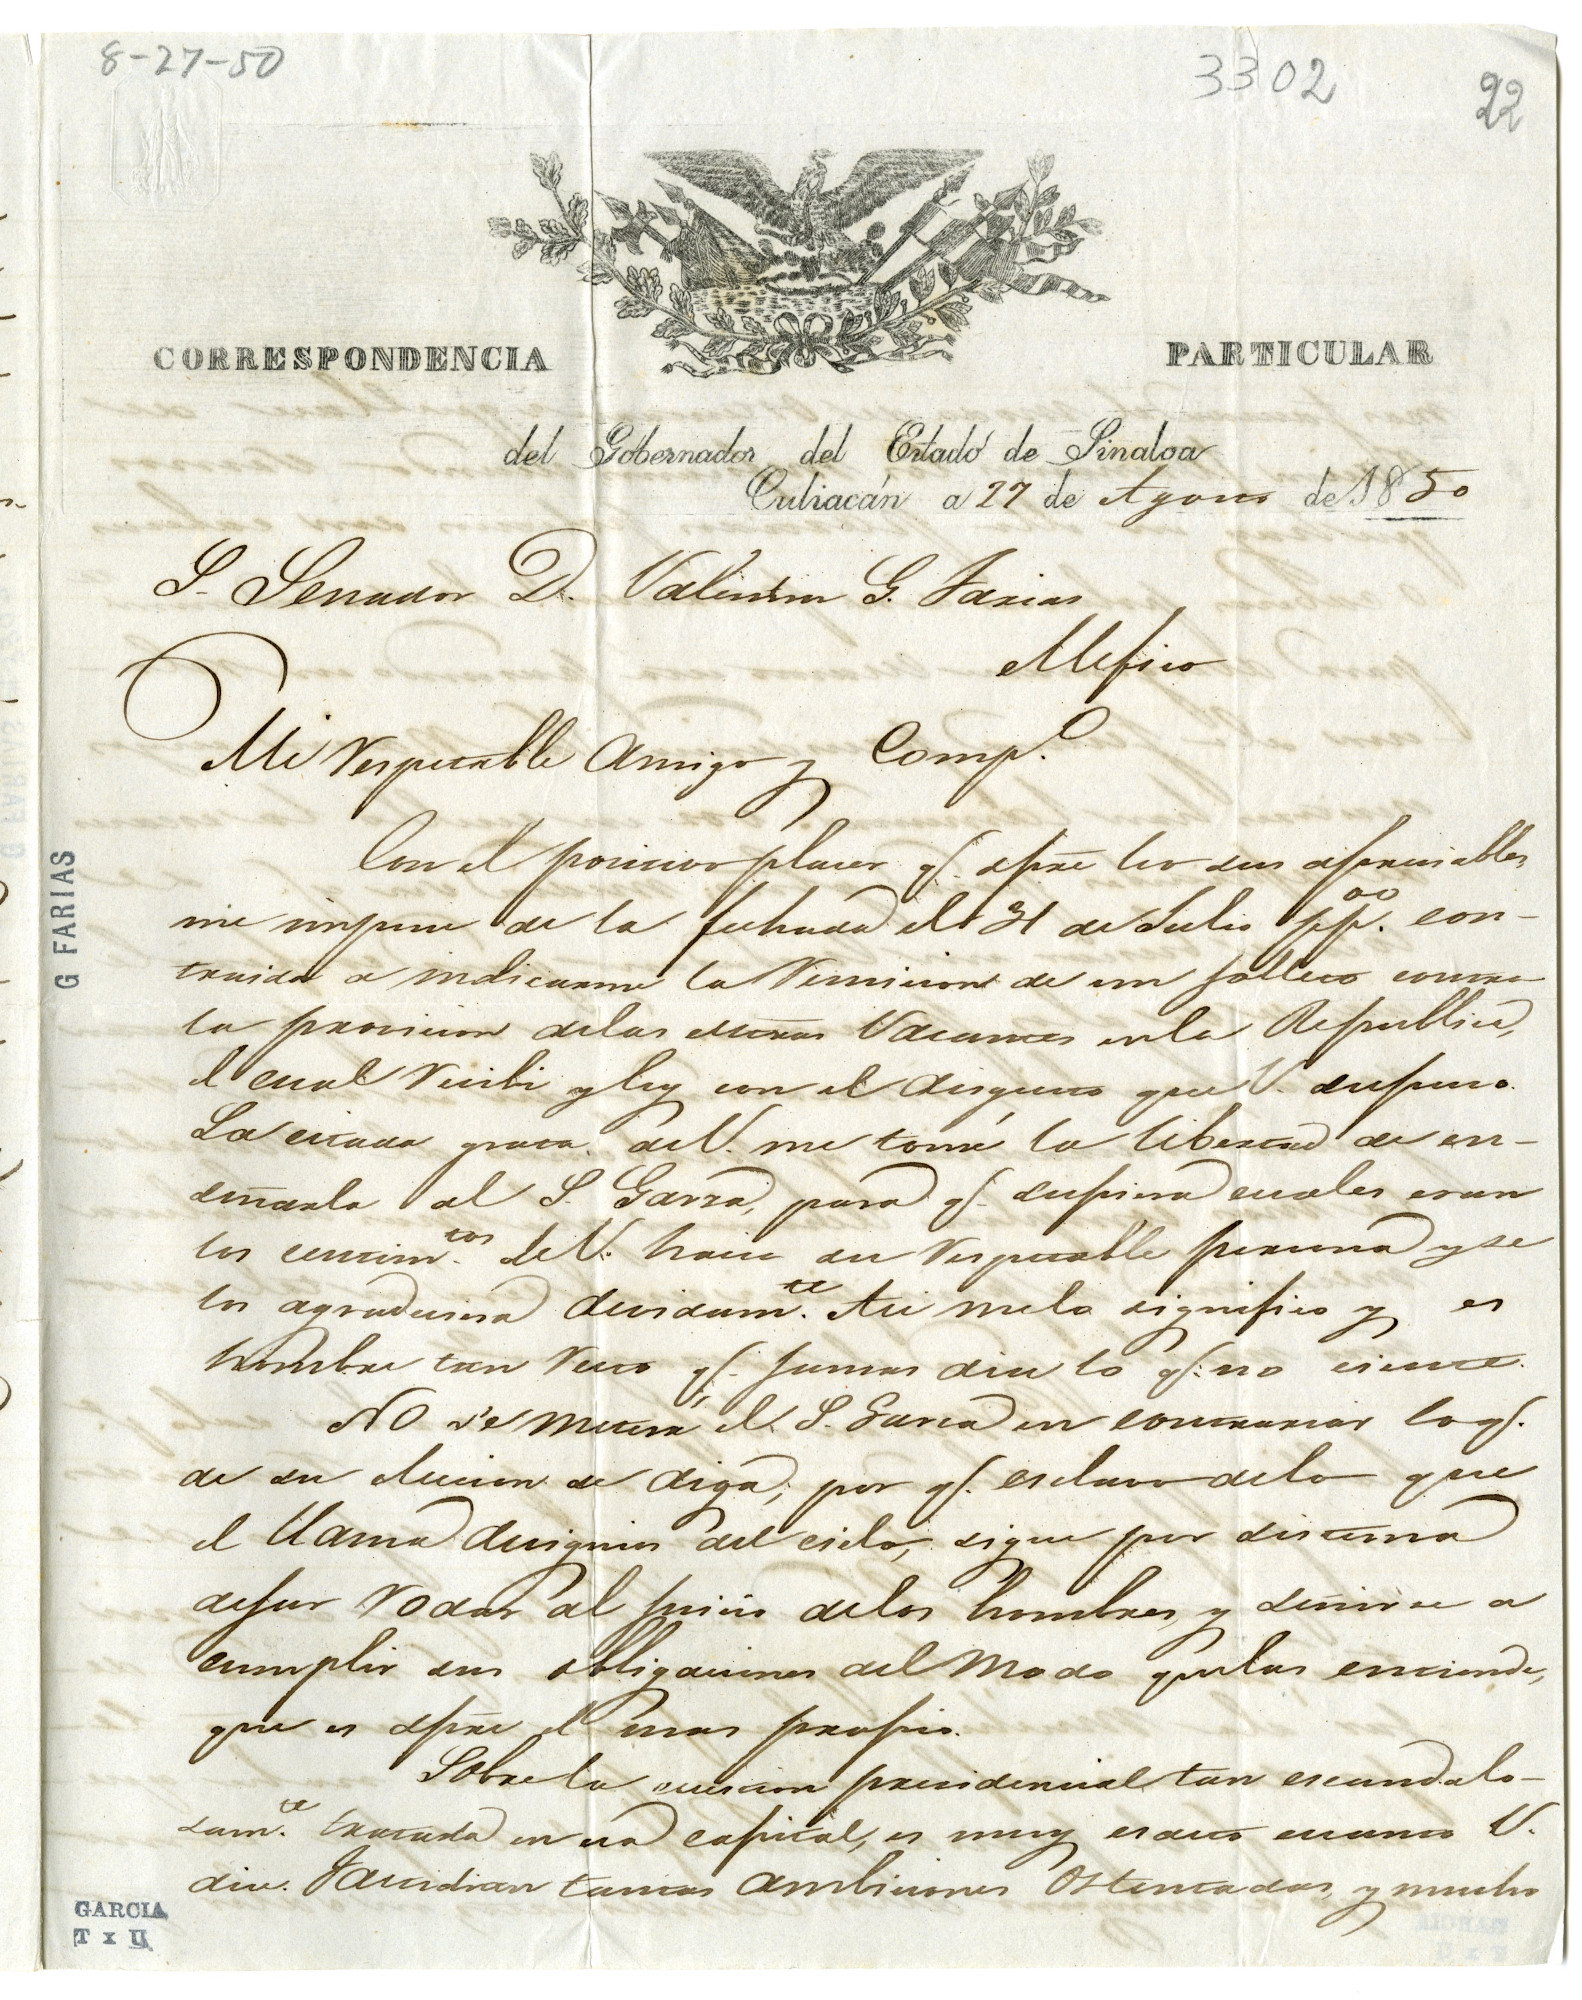 8-27-50
3302
22
CORRESPONDENCIA PARTICULAR
del Gobernador del Estado de Sinaloa
Culiacán a 27 de Agosto de 1850
S. Senador D. Valentin G. Farias
Mejico
Mi respetable Amigo y Comp.o
Con el posicivo placer q. spre leo sus apreciables,
me impuse de la fechada el 31 de Julio pp.oo con-
traida a indicarme la remicion de un folleto contra
la provicion delas mitras Vacantes en la Republica,
el cual recibi y ley con el disgusto que V. supuso.
La citada grata de V. me tomé la libertad de en-
señarla al S. Garza, para q. supiera cuales eran
los sentim.tos de V. hacia su respetable persona y se
los agradeciera devidam.te Asi melo significo y es
hombre tan recto q. jamas dice lo q. no siente.
No se meterá el S. Garza en contrariar lo q.
de su eleccion se diga, por q. esclavo delo que
el llama designios del cielo, sigue por sistema
dejar rodar al juicio delos hombres, y ceñirse a
cumplir sus obligaciones del modo quelas entiende,
que es spre el mas propio.
Sobre la cuestion presidencial tan escandalo-
sam.te tratada en esa capital, es muy esacto cuanto V.
dice. Fastidian tantas ambiciones ostentadas, y mucho
G FARIAS
GARCIA
T x U